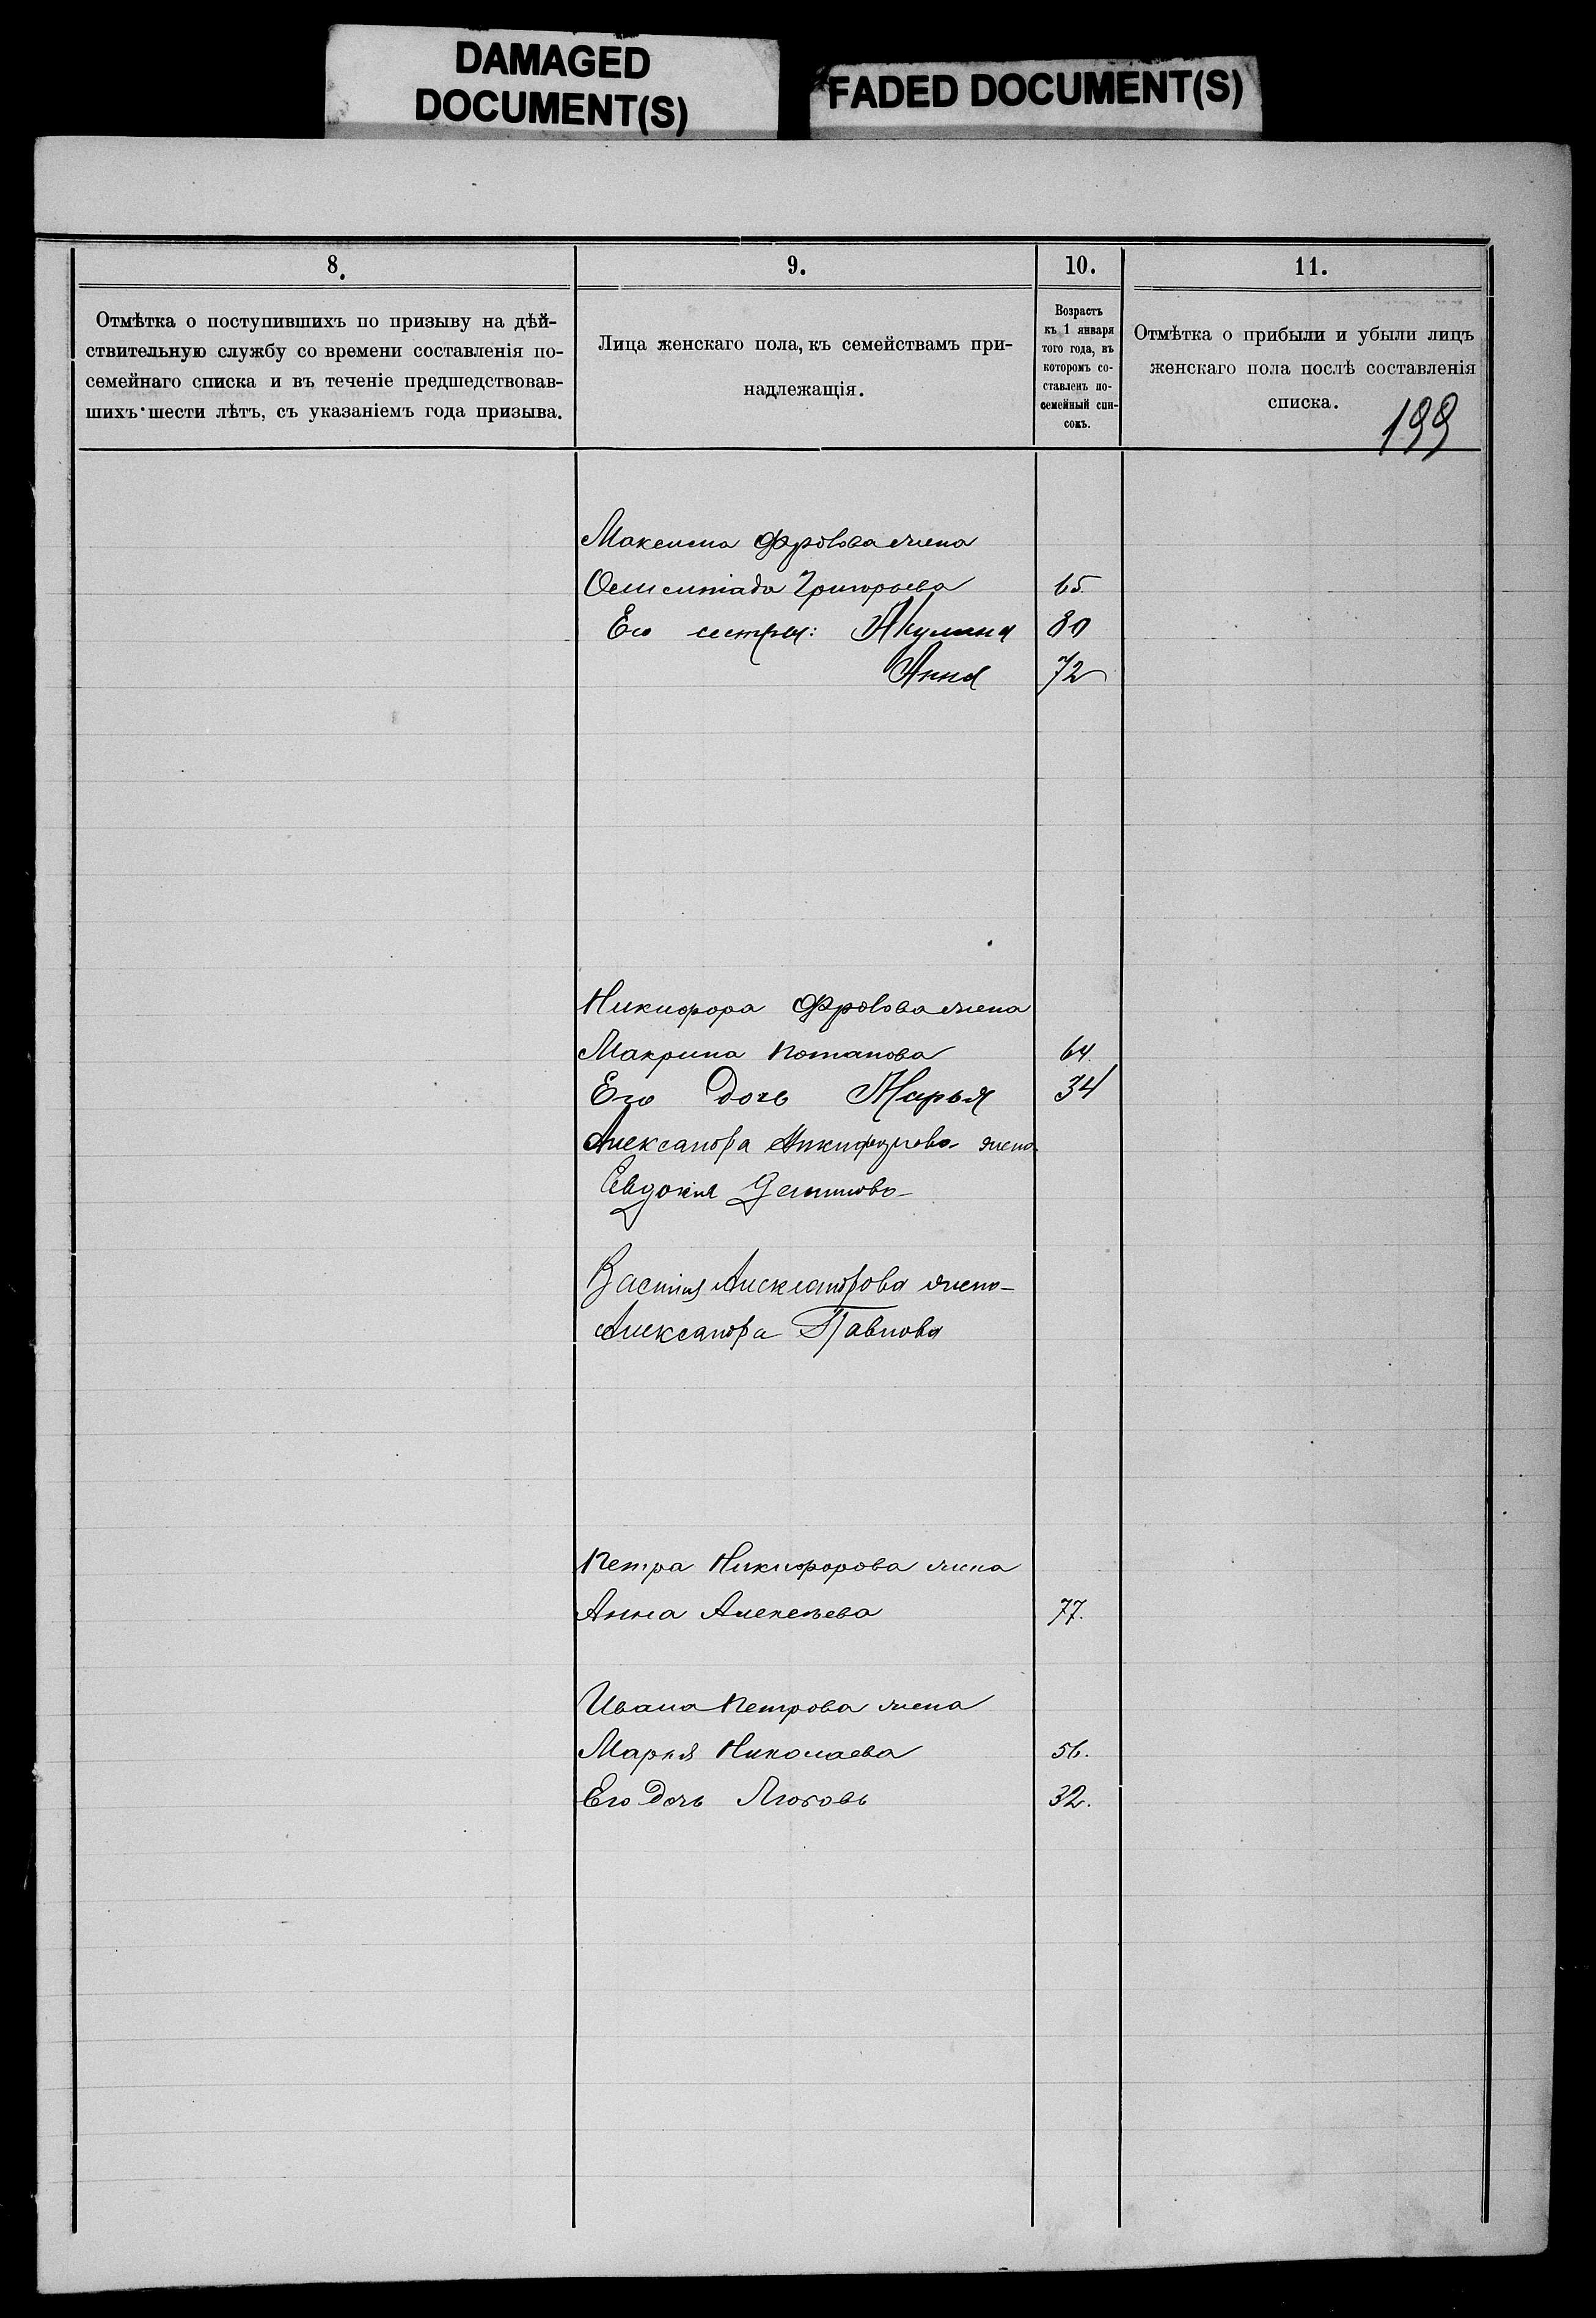 DAMAGED
DOCUMENT(S)
FADED DOCUMENT(S)
8.
Отмѣтка о поступившихъ по призыву на дѣй-
ствительную службу со времени составленія по-
семейнаго списка и въ теченіе предшедствовав-
шихъ шести лѣтъ, съ указаніемъ года призыва.
9.
Лица женскаго пола, къ семействамъ при-
надлежащія.
10.
Возрастъ
къ 1 января
того года, въ
которомъ со-
ставленъ по-
семейный спи-
сокъ.
11.
Отмѣтка о прибыли и убыли лицъ
женскаго пола послѣ составленія
списка.
199
Максима Фролова жена
Григорьева 65.
Его сестры: Акулина 80
Анна 72
Никифора Фролова жена
Макрина Потапова 64.
Его дочь Марья 34
Александра Никифорова жена
Евдокия
Александрова жена
Александра Павлова
Петра Никифорова жена
Анна Алексѣева 77.
Ивана Петрова жена
Марья Николаева 56.
Его дочь Любовь 32.